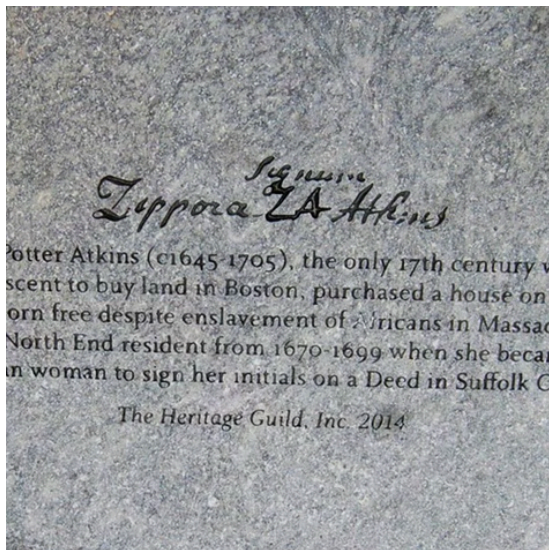 Signum
Zippora ZA Atkins
Potter Atkins (c1645-1705), the only 17th century
scent to buy land in Boston, purchased a house on
orn free despite enslavement of Africans in Massac
North End resident from 1670-1699 when she becam
an woman to sign her initials on a Deed in Suffolk
The Heritage Guild, Inc. 2014